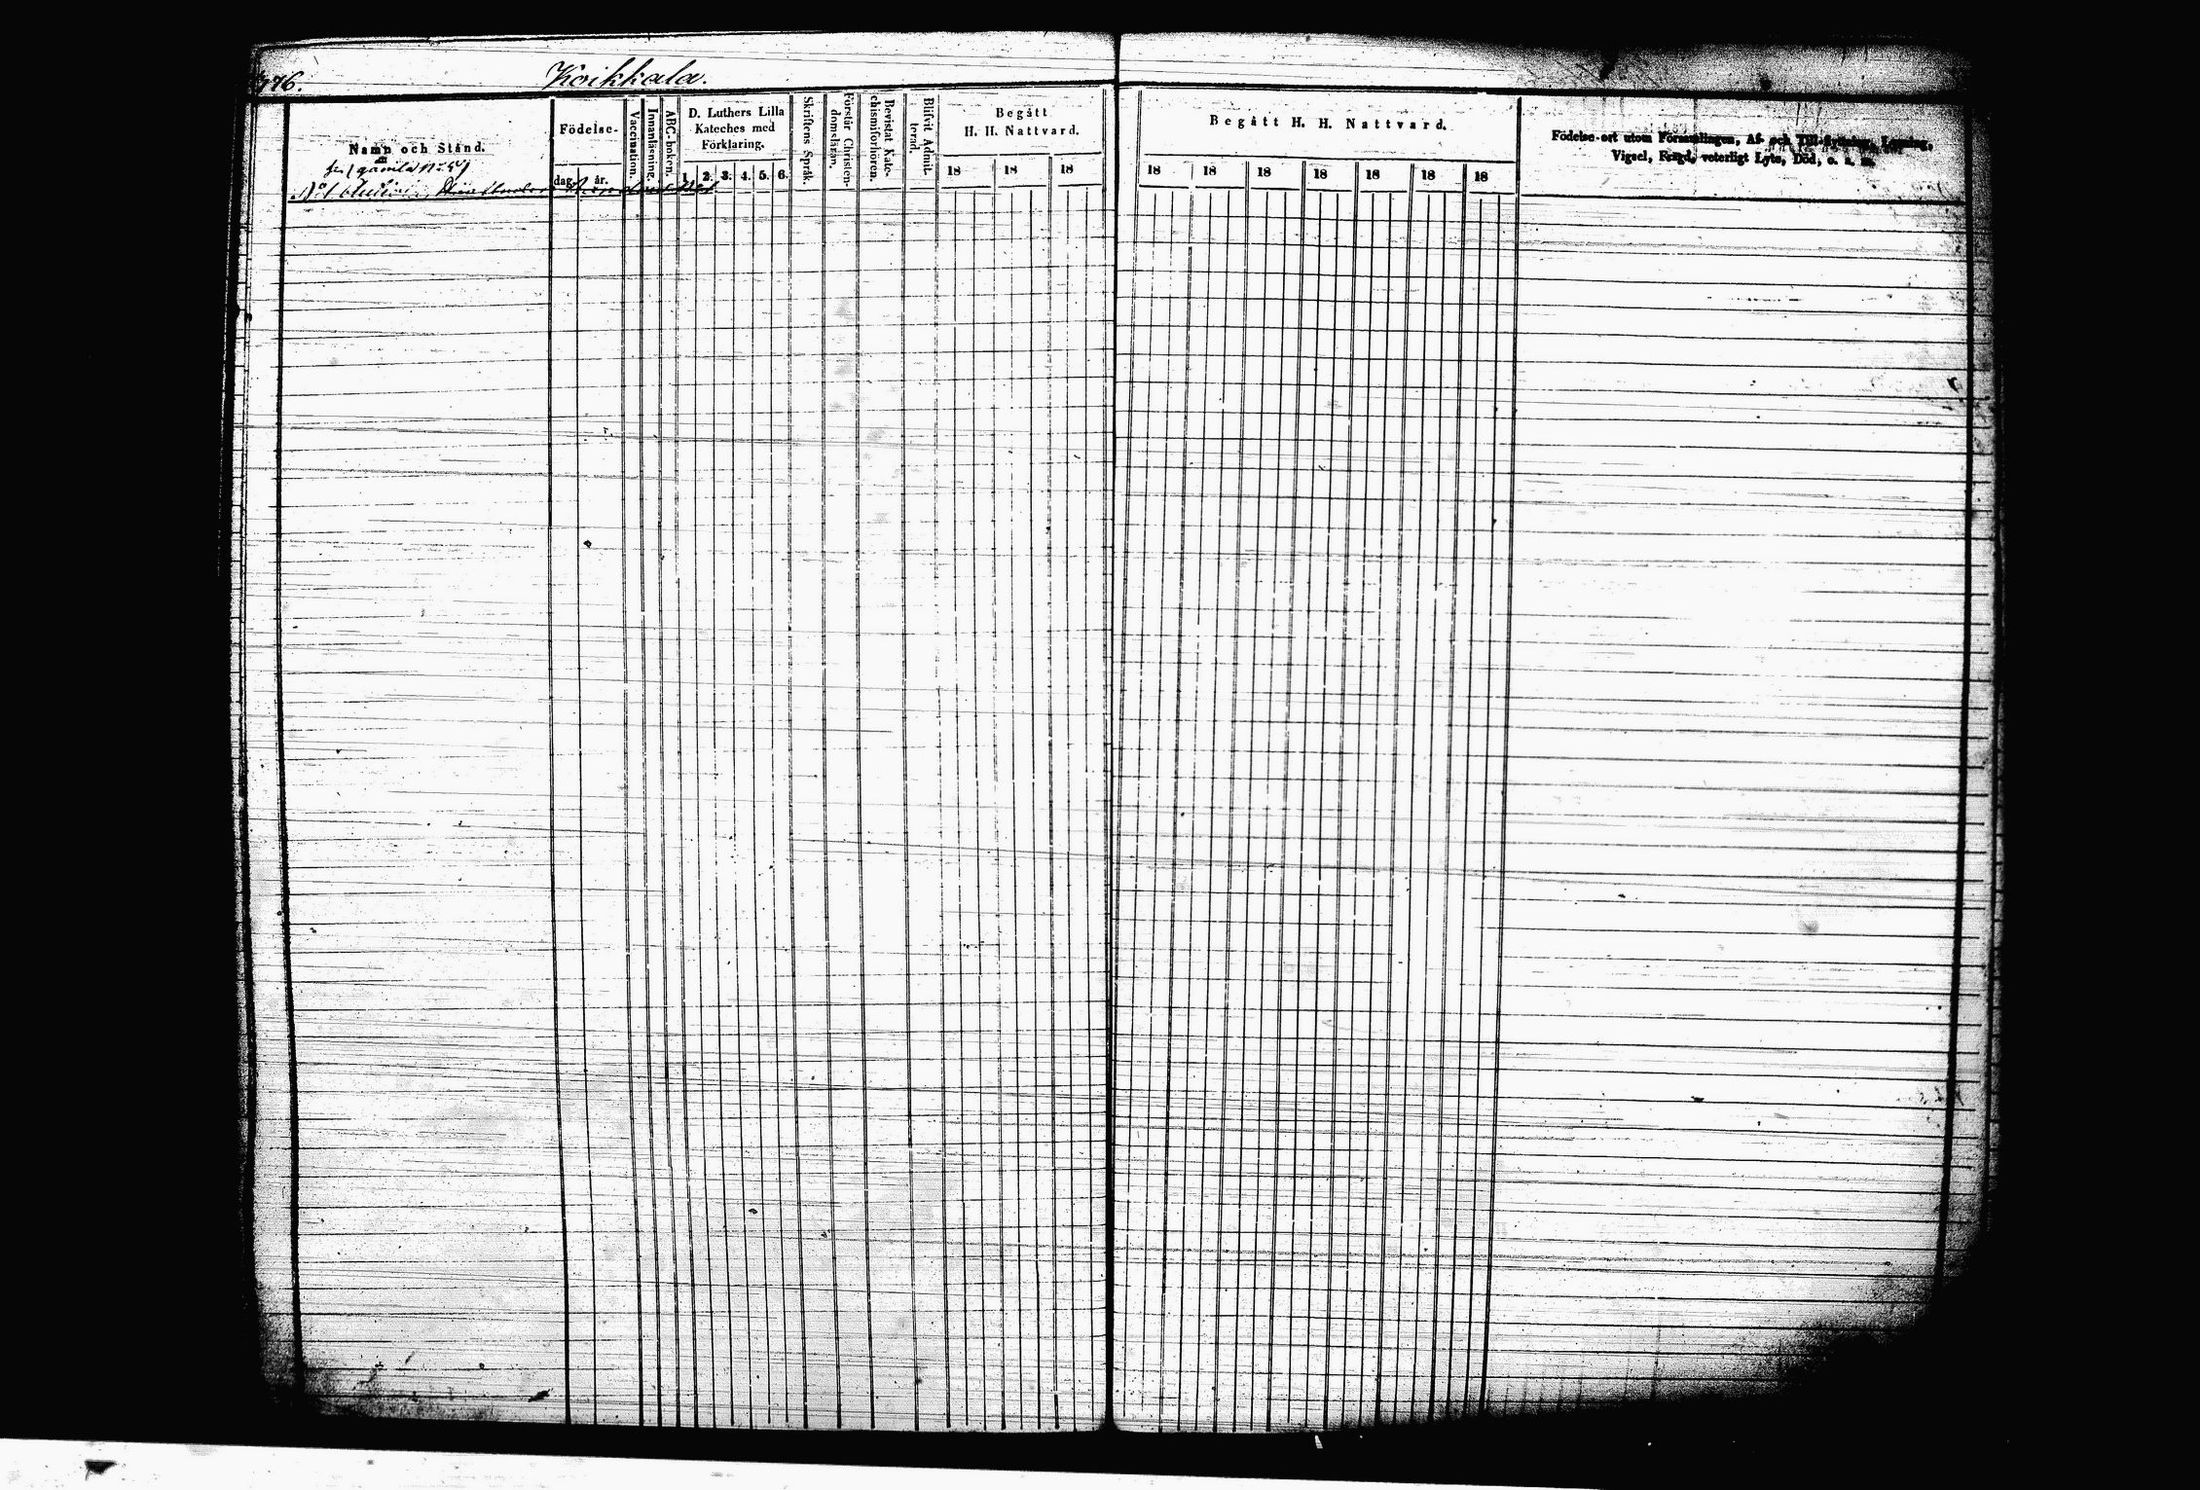 476.
Koikkala.
Namn och Stånd.
(gamla N:o 5)
Födelse-
dag. år.
Vaccination.
Innanläsning.
ABC-boken.
D. Luthers Lilla
Kateches med
Förklaring.
1. 2. 3. 4. 5. 6.
Skriftens Språk.
Förstår Christen-
domsläran.
Bevistat Kate-
chismiförhören.
Blifvit Admit-
terad.
Begått
H. H. Nattvard.
18 18 18
Begått H. H. Nattvard.
18 18 18 18 18 18 18
Födelse-ort utom Församlingen, Af- och Till-flyttning, Lysning,
Vigsel, Frägd, veterligt Lyte, Död, o. s. m.